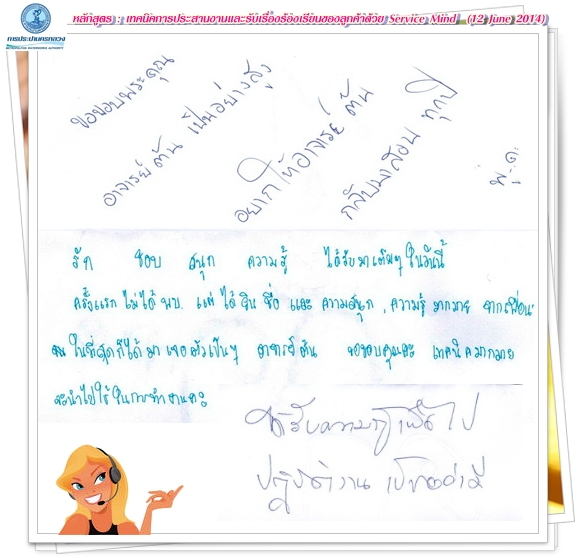 หลักสูตร : เทคนิคการประสานงานและรับเรื่องร้องเรียนของลูกค้าด้วย Service Mind (12 June 2014)
การประปานครหลวง
METROPOLITAN WATERWORKS AUTHORITY
ขอขอบพระคุณ
อาจารย์ต้น เป็นอย่างสูง
อยากให้อาจารย์ ต้น
กลับมาสอน ทุกปี
รัก ชอบ สนุก ความรู้ ได้รับมาเต็มๆ ในวันนี้
ครั้งแรก ไม่ได้พบ. แต่ ได้ยิน ชื่อ และ ความสนุก , ความรู้ มากมาย จากเพื่อน
ในที่สุดก็ได้มา เจอตัวเป็นๆ อาจารย์ต้น ขอขอบคุณ เทคนิคมากมาย
จะนำไปใช้ในการทำงานค่ะ
ได้รับความรู้เพื่อไป
ปฏิบัติงาน